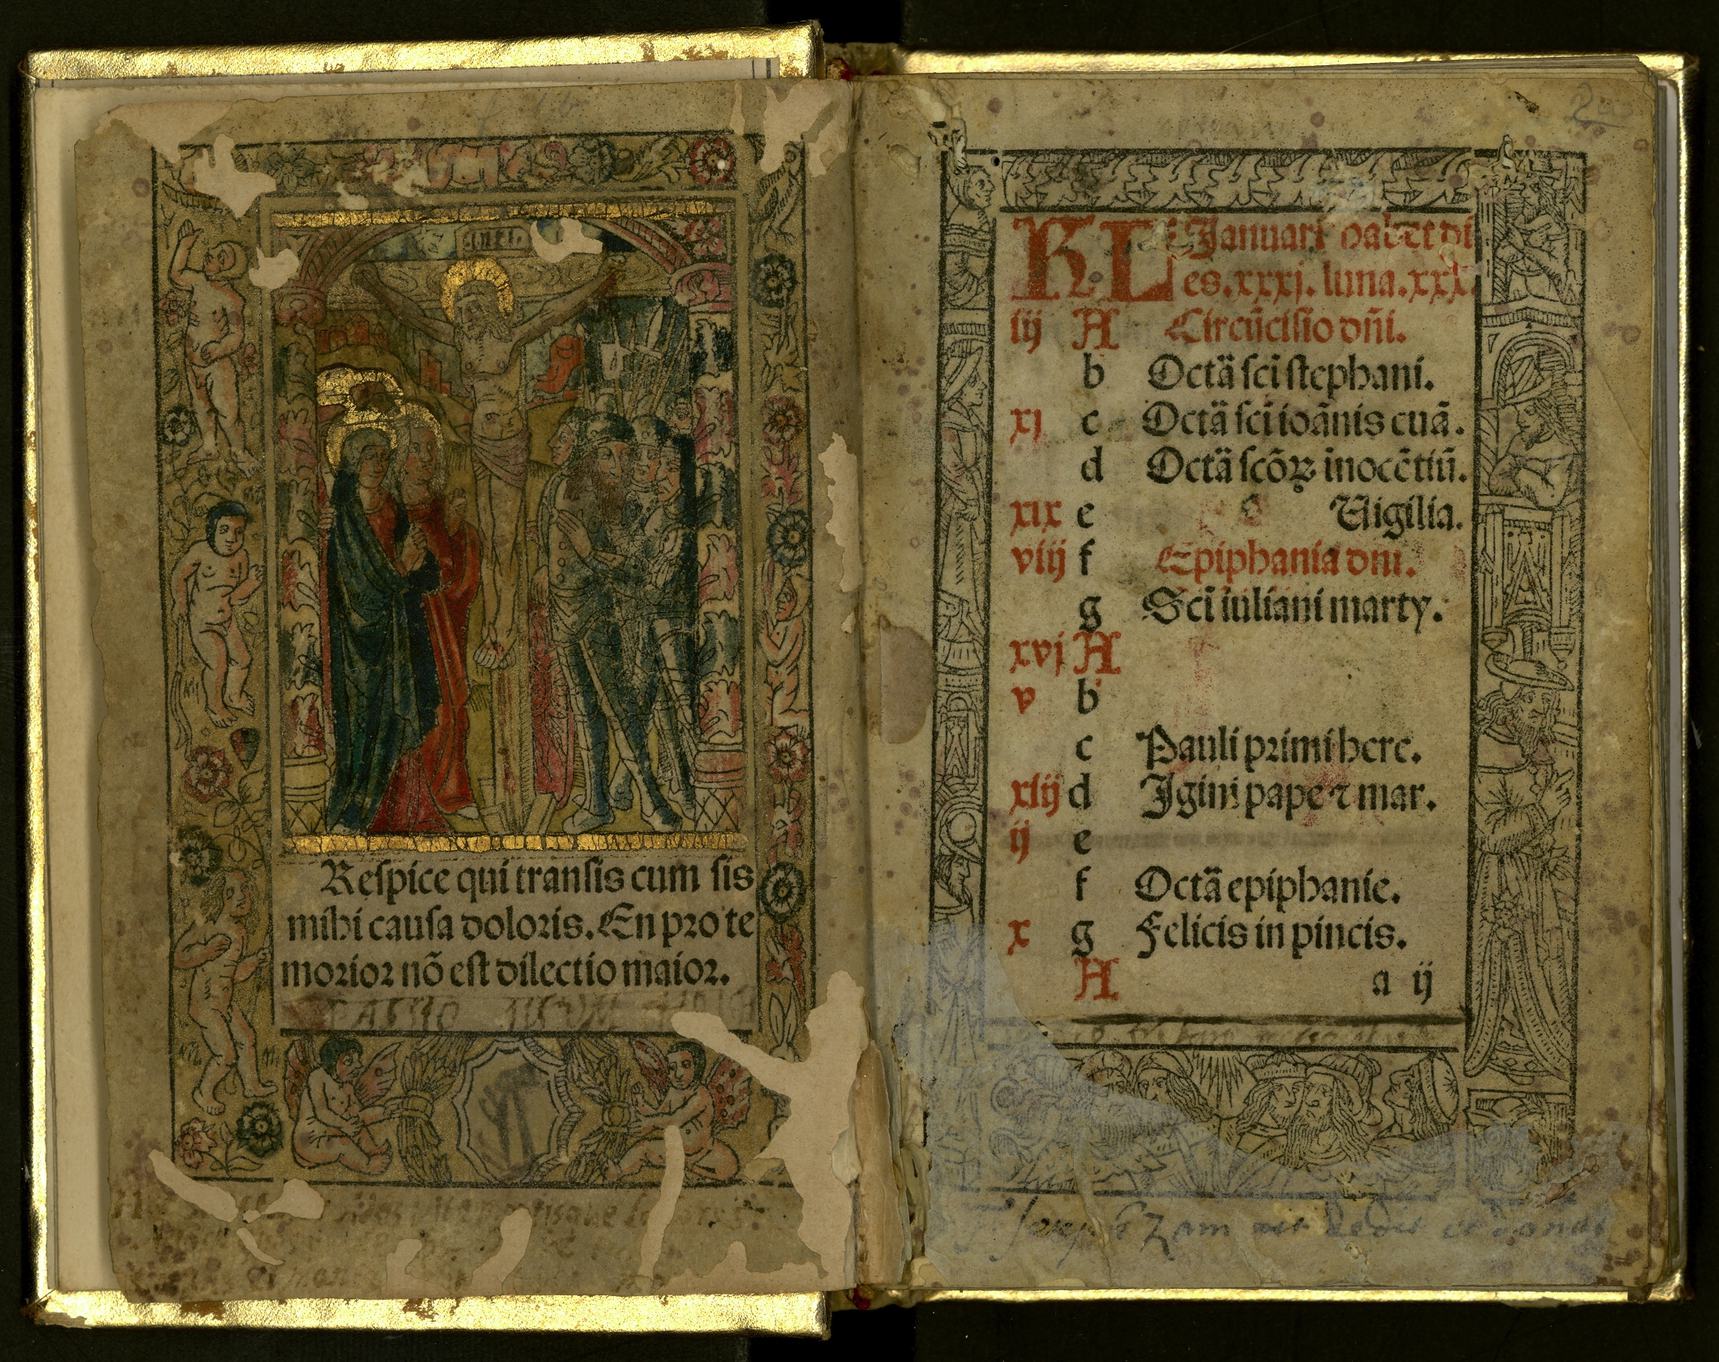 INRI
Respice qui transis cum sis
mihi causa doloris. En pro te
morior nō est dilectio maior.
2
KL Januari᷒ habet di
es. xxxj. luna. xxx.
iij A Circūcisio dn̄i.
b Octā sci stephani.
xj c Octā sci ioānis euā.
d Octā scōꝝ inocētiū.
xix e Uigilia.
viij f Epiphania dni.
g Sci iuliani marty.
xvj A
v b
c Pauli primi here.
xiij d Igini pape ⁊ mar.
ij e
f Octā epiphanie.
x g Felicis in pincis.
A a ij